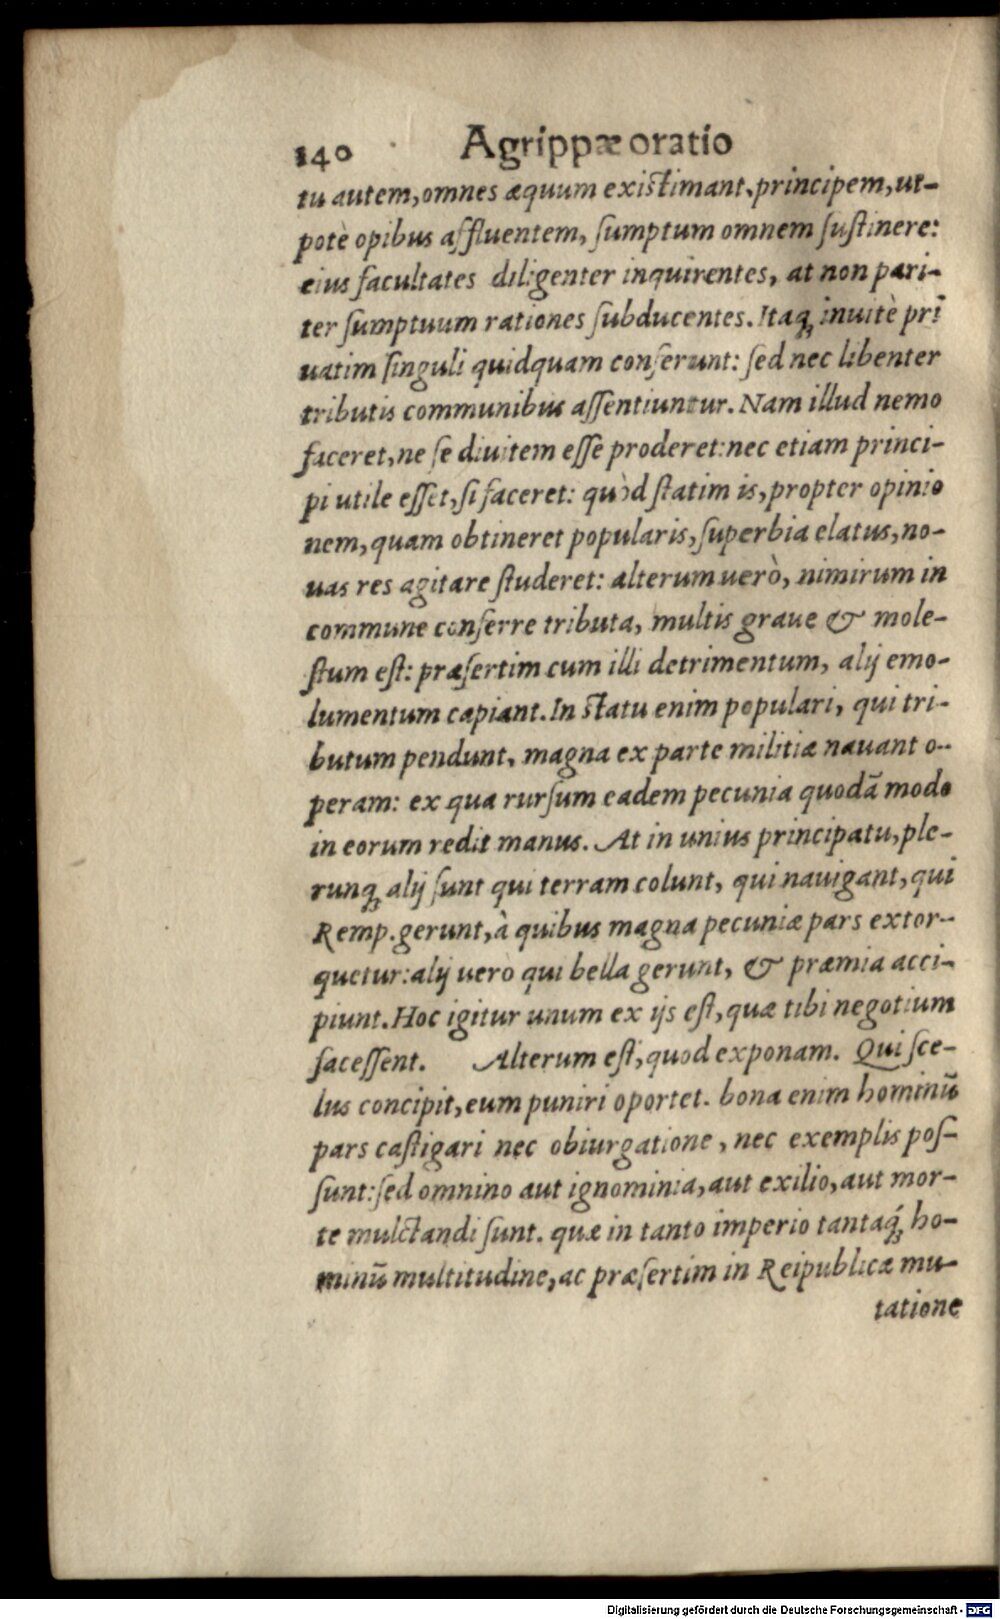 140 Agrippæ oratio
tu autem, omnes æquum existimant, principem, ut-
potè opibus affluentem, ſumptum omnem ſuſtinere:
eius facultates diligenter inquirentes, at non pari-
ter ſumptuum rationes ſubducentes. Itaqꝫ inuitè pri
uatim ſinguli quidquam conferunt: ſed nec libenter
tributis communibus aſſentiuntur. Nam illud nemo
faceret, ne ſe diuitem eſſe proderet: nec etiam princi-
pi utile eſſet, ſi faceret: quòd ſtatim is, propter opinio
nem, quam obtineret popularis, ſuperbia elatus, no-
uas res agitare ſtuderet: alterum uerò, nimirum in
commune conferre tributa, multis graue & mole-
ſtum eſt: præſertim cum illi detrimentum, alij emo-
lumentum capiant. In ſtatu enim populari, qui tri-
butum pendunt, magna ex parte militiæ nauant o-
peram: ex qua rurſum eadem pecunia quodā modo
in eorum redit manus. At in unius principatu, ple-
runqꝫ alij ſunt qui terram colunt, qui nauigant, qui
Remp. gerunt, à quibus magna pecuniæ pars extor-
quetur: alij uerò qui bella gerunt, & præmia acci-
piunt. Hoc igitur unum ex ijs eſt, quæ tibi negotium
faceſſent. Alterum eſt, quod exponam. Qui ſce-
lus concipit, eum puniri oportet. bona enim hominū
pars caſtigari nec obiurgatione, nec exemplis poſ-
ſunt: ſed omnino aut ignominia, aut exilio, aut mor-
te mulctandi ſunt. quæ in tanto imperio tantaq́ꝫ ho-
minū multitudine, ac præſertim in Reipublicæ mu-
tatione
Digitalisierung gefördert durch die Deutsche Forschungsgemeinschaft - DFG